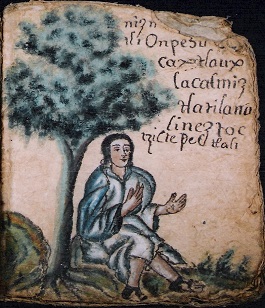 nizn
tli Onpehu
caxtlaux
lacalmiz
tlatilano
lineztoc
tzictepec tlali